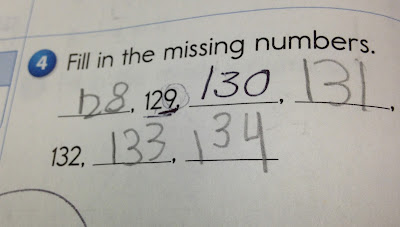 4 Fill in the missing numbers.
128, 129, 130, 131,
132, 133, 134